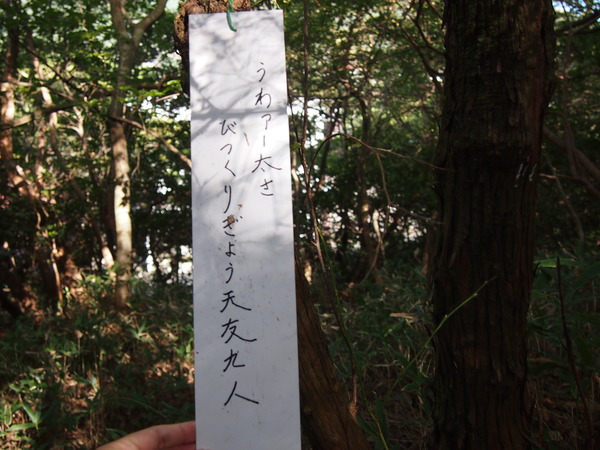 うわァー太さ
びっくりぎょう天友九人